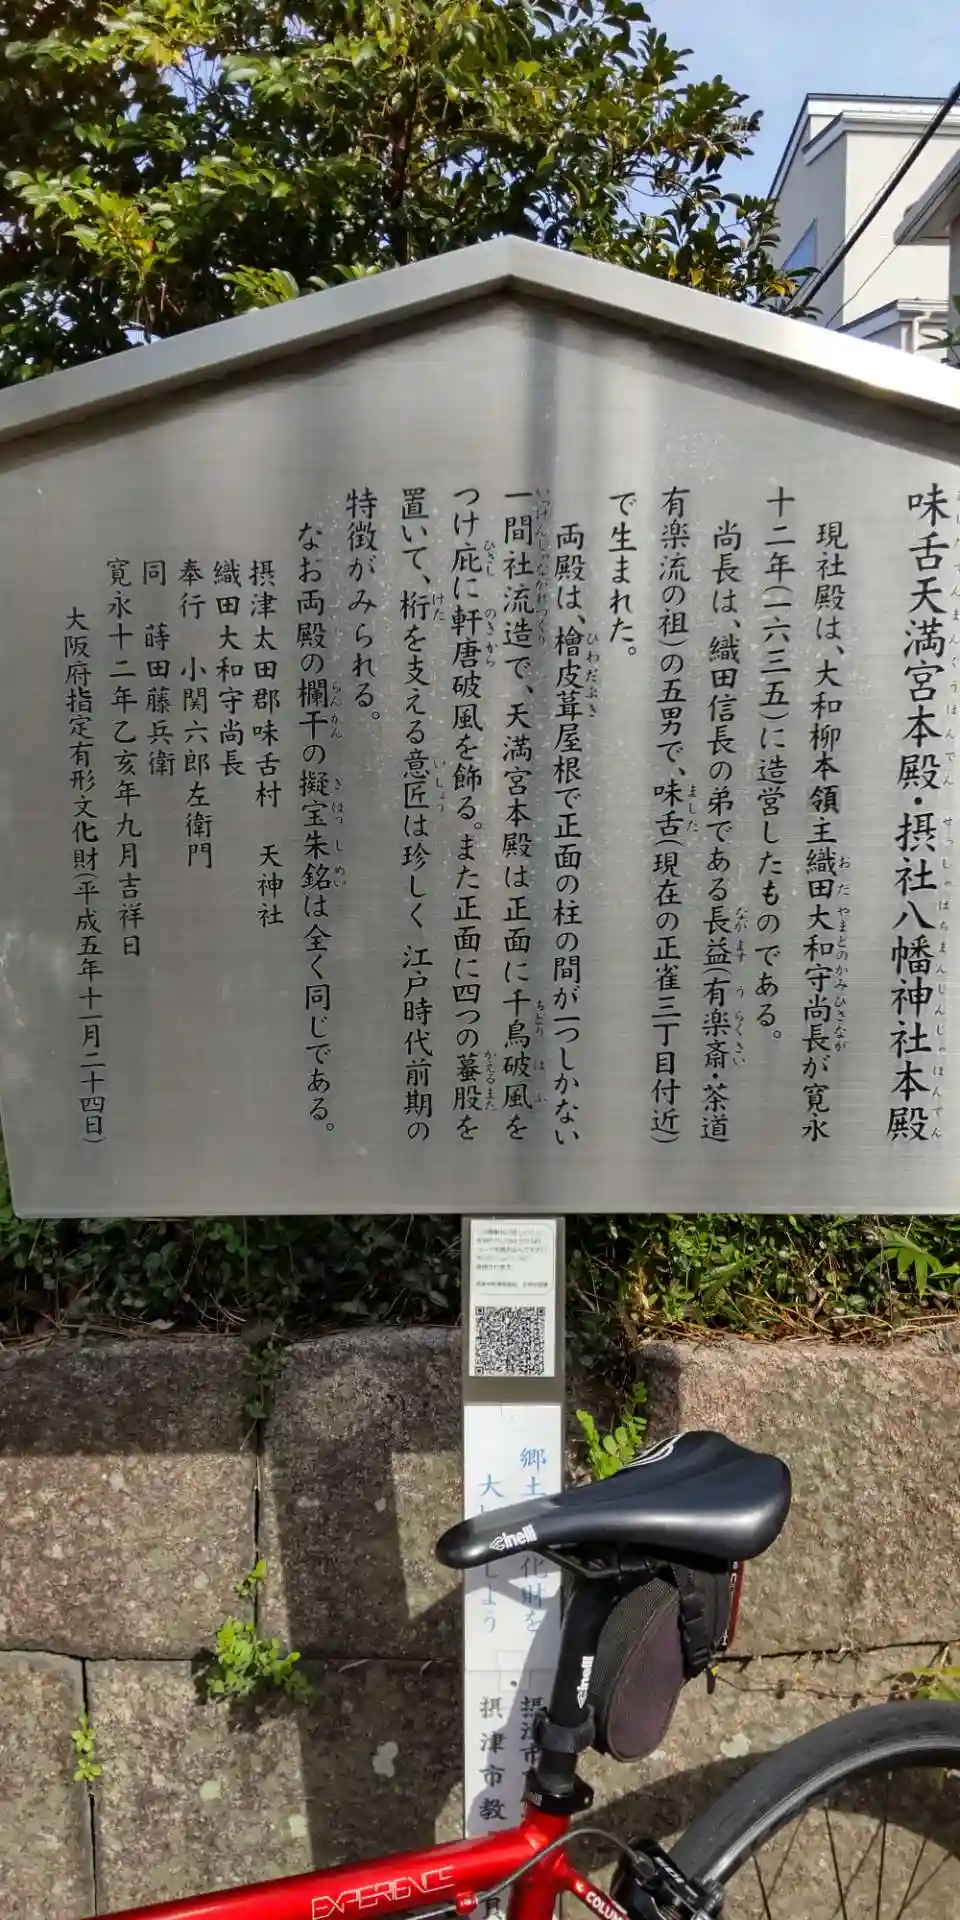 味舌天満宮本殿・摂社八幡神社本殿
現社殿は、大和柳本領主織田大和守尚長が寛永
十二年(一六三五)に造営したものである。
尚長は、織田信長の弟である長益(有楽斎・茶道
有楽流の祖)の五男で、味舌(現在の正雀三丁目付近)
で生まれた。
両殿は、檜皮葺屋根で正面の柱の間が一つしかない
一間社流造で、天満宮本殿は正面に千鳥破風を
つけ庇に軒唐破風を飾る。また正面に四つの蟇股を
置いて、桁を支える意匠は珍しく 江戸時代前期の
特徴がみられる。
なお両殿の欄干の擬宝朱銘は全く同じである。
摂津太田郡味舌村 天神社
織田大和守尚長
奉行 小関六郎左衛門
同 蒔田藤兵衛
寛永十二年乙亥年九月吉祥日
大阪府指定有形文化財(平成五年十一月二十四日)
郷土
化財を
大
しよう
摂津市
摂津市教
cinelli
cinelli
EXPERIENCE
COLUM